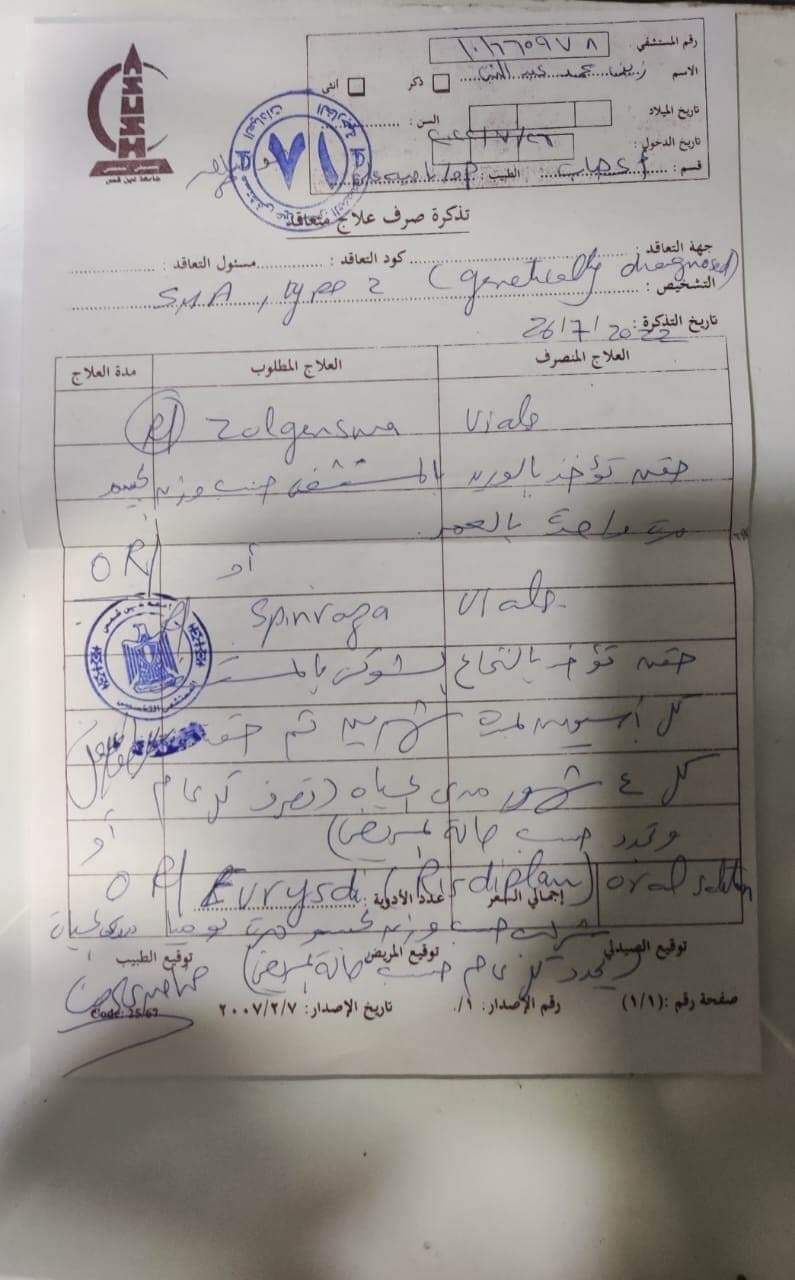 رقم المستشفي ١٠١٦٦٥٩٧٨
الاسم
ذكر أنثى
تاريخ الميلاد السن :
تاريخ الدخول : ٢٠٢٢/٧/٢٦
قسم : أعصاب الطبيب :
٧١
جامعة عين شمس
تذكرة صرف علاج متعاقد
جهة التعاقد : كود التعاقد : مسئول التعاقد :
التشخيص : SMA, type 2 (genetically diagnosed)
تاريخ التذكرة : 26/7/2022
العلاج المنصرف العلاج المطلوب مدة العلاج
R/ Zolgensma vials
حقنه تؤخذ بالوريد بالمستشفى حسب وزن الجسم
مرة واحدة بالعمر
OR/ أو
Spinraza vials
حقنه تؤخذ بالنخاع الشوكي
كل أسبوعين لمدة شهرين ثم حقنه
كل ٤ شهور مدى الحياه (تصرف كل عام
وتجدد حسب حالة المريض) أو
OR/ Evrysdi (Risdiplam) oral solution
إجمالي السعر عدد الأدوية :
شراب حسب وزن الجسم مرة يوميا مدى الحياة
توقيع الصيدلي توقيع المريض توقيع الطبيب
(يجدد كل عام حسب حالة المريض)
صفحة رقم :(١/١) رقم الإصدار: ١/. تاريخ الإصدار: ٢٠٠٧/٢/٧ Code: 25/67